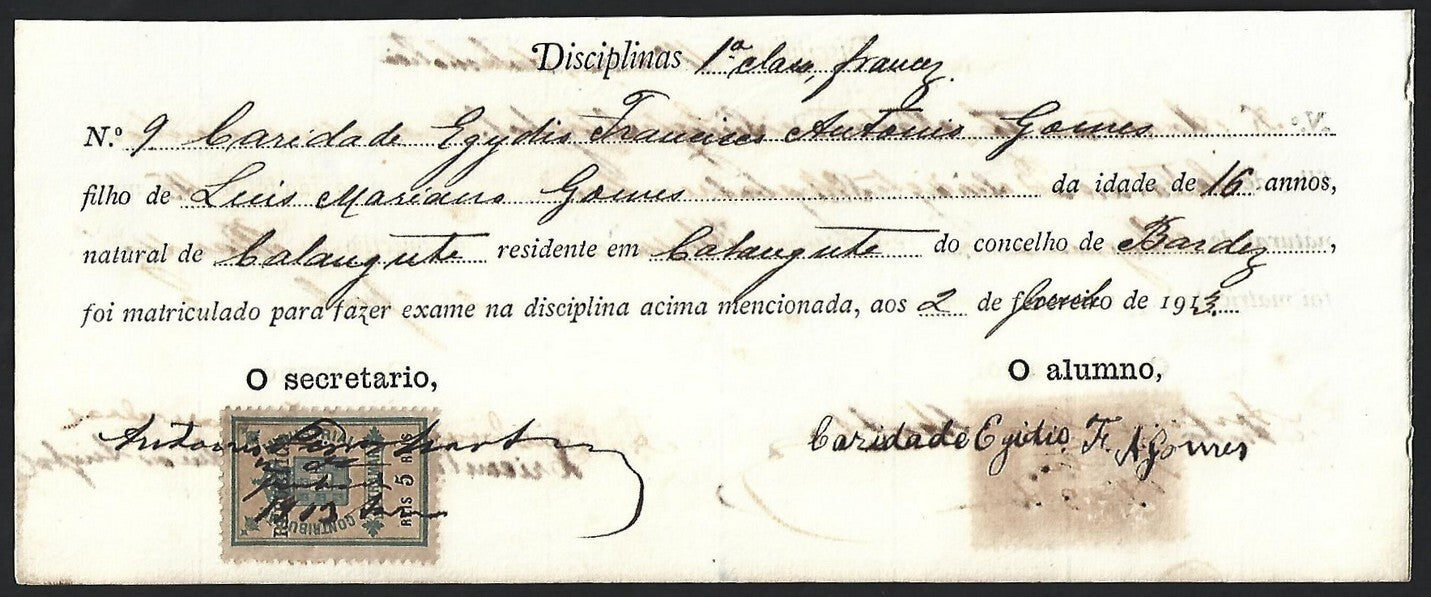 Disciplinas 1ª class, francez.
N.º 9 Caridade Egydio Francisco Antonio Gomes
filho de Luis Mariano Gomes da idade de 16 annos,
natural de Calangute residente em Calangute do concelho de Bardez,
foi matriculado para fazer exame na disciplina acima mencionada, aos 2 de fevereiro de 1913.
O secretario,
O alumno,
Antonio
Caridade Egidio F. A Gomes
REIS 5 REIS